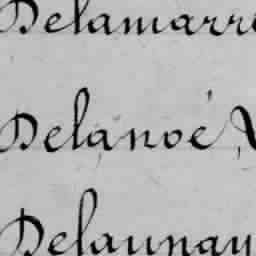 Delamarre
Delanoé
Delaunay